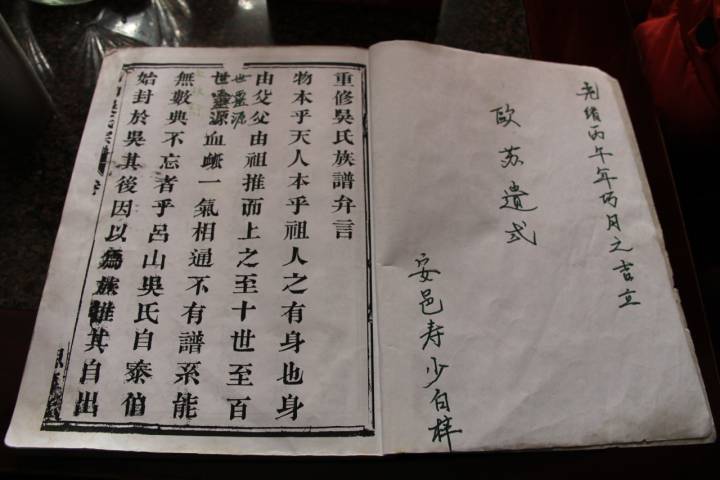 光绪丙午年丙月之吉立
欧苏遺式
安邑寿少白梓
重修吳氏族譜弁言
物本乎天人本乎祖人之有身也身
由父父由祖推而上之至十世至百
世靈源
世靈源血䘐一氣相通不有譜系能
無數典不忘者乎呂山吳氏自泰伯
始封於吳其後因以爲族推其自出